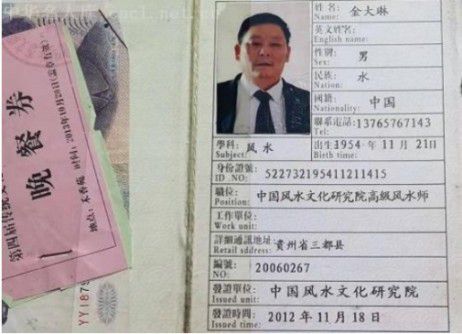 第四届
晚餐券
时间:2013年10月20日
地点:
YY187
姓名: 金大琳
Name:
英文姓名:
English name:
性别: 男
Sex:
民族: 水
Nation:
國籍: 中国
Nationality:
聯系電話: 13765767143
Contact Tel:
學科: 风水
Subject:
出生 1954 年 11 月 21日
Birth time:
身份證號: 522732195411211415
ID .NO:
職位: 中国风水文化研究院高级风水师
Position:
工作單位:
Work unit:
詳細通訊地址: 貴州省三都县
Retail address:
編號: 20060267
NO:
發證單位: 中国风水文化研究院
Issued unit:
發證時間: 2012 年 11 月 18 日
Issued time: